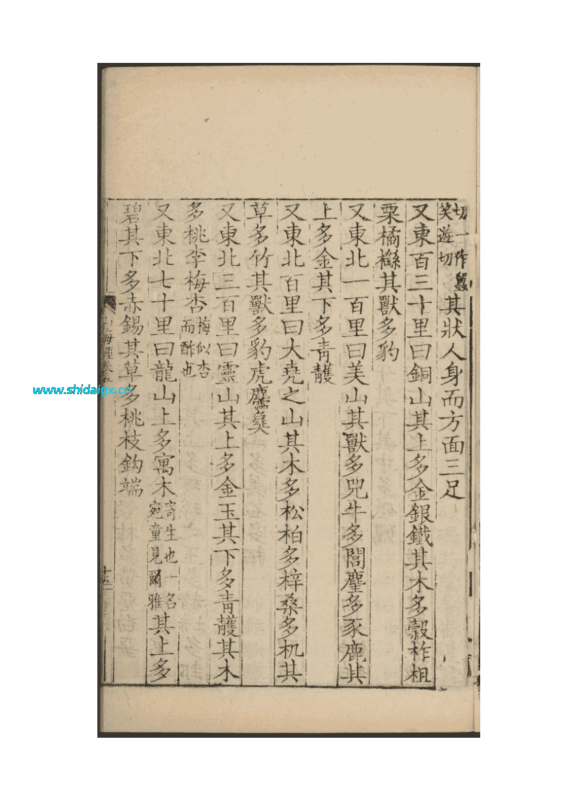 切一作䰠其狀人身而方面三足
笑遊切
又東百三十里曰銅山其上多金銀鐵其木多穀柞柤
栗橘櫾其獸多豹
又東北一百里曰美山其獸多兕牛多閭麈多豕鹿其
上多金其下多青䨼
又東北百里曰大堯之山其木多松柏多梓桑多机其
草多竹其獸多豹虎麢㚟
又東北三百里曰靈山其上多金玉其下多青䨼其木
多桃李梅杏梅似杏
而酢也
又東北七十里曰龍山上多寓木寄生也一名
宛童見爾雅其上多
碧其下多赤錫其草多桃枝鈎端
十五
www.shidaigx.cn